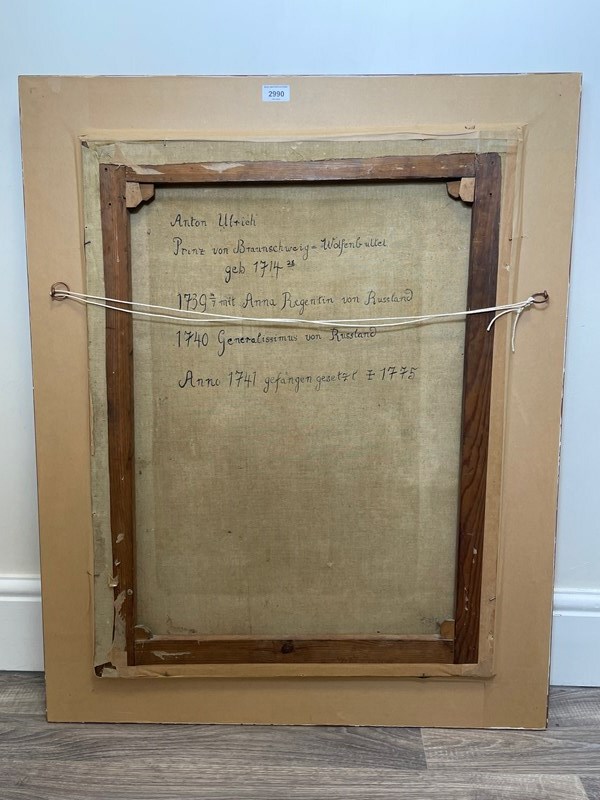 2990
Anton Ulrich
Prinz von Braunschweig = Wolfenbüttel
geb 1714
1739 mit Anna Regentin von Russland
1740 Generalissimus von Russland
Anno 1741 gefangen gesetzt 1775